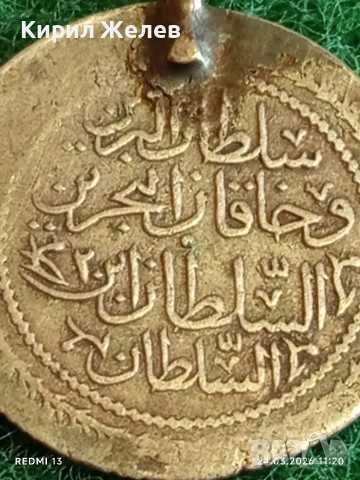 Кирил Желев
سلطان البرين
وخاقان البحرين
السلطان ابن
السلطان
REDMI 13
24.03.2026 11:20